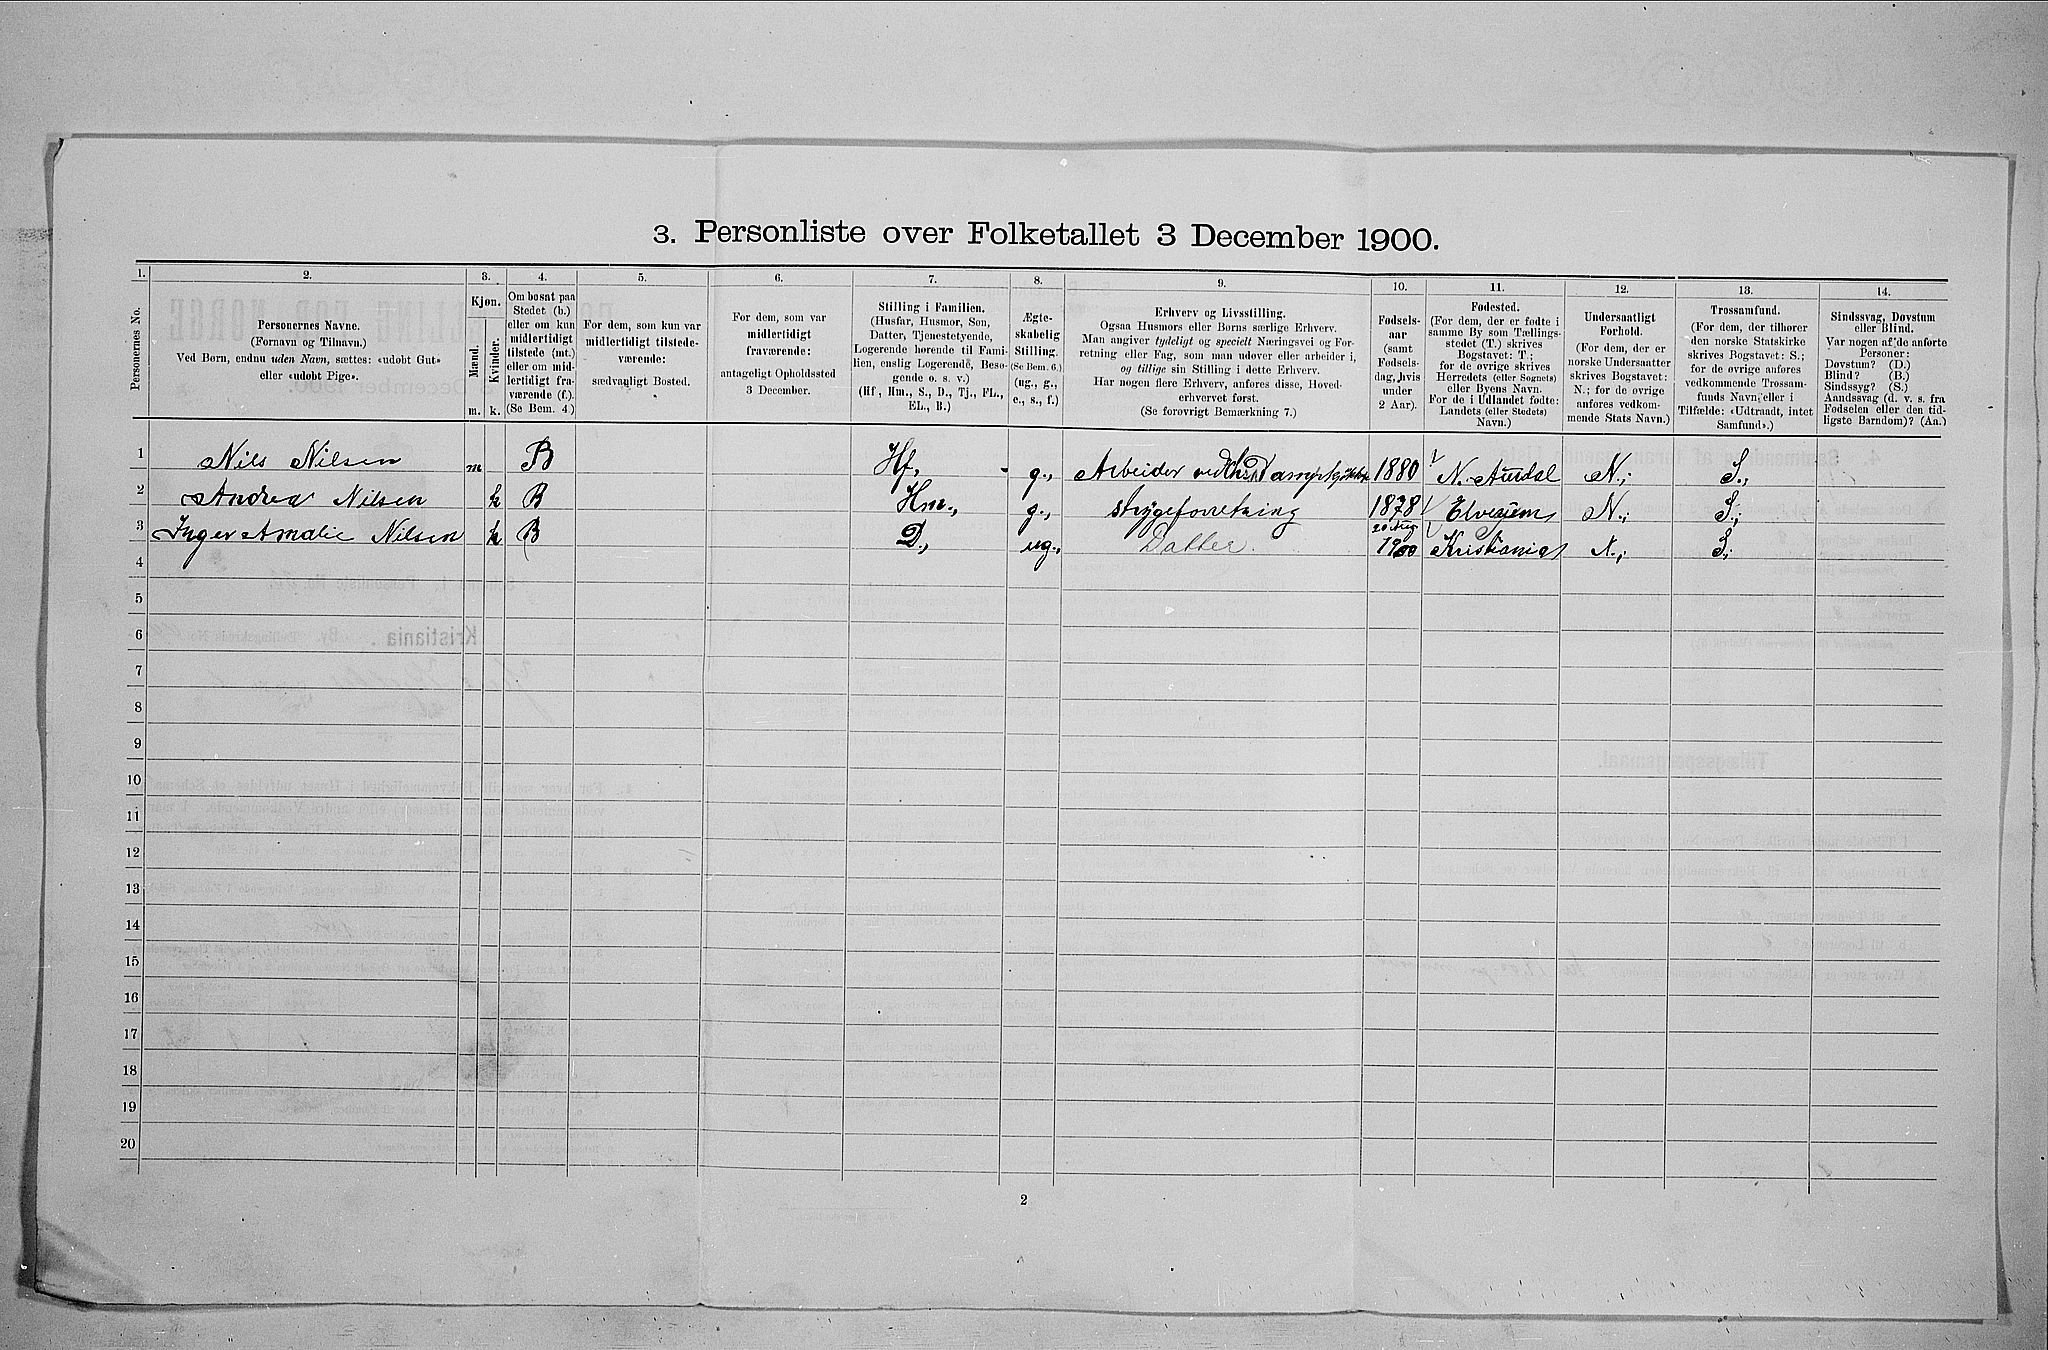 3. Personliste over Folketallet 3 December 1900.
1. 2. 3. 4. 5. 6. 7. 8. 9. 10. 11. 12. 13. 14.
Personernes No.
Personernes Navne.
(Fornavn og Tilnavn.)
Ved Børn, endnu uden Navn, sættes: «udøbt Gut»
eller «udøbt Pige».
Kjøn.
Mænd.
Kvinder.
m. k.
Om bosat paa
Stedet (b.)
eller om kun
midlertidigt
tilstede (mt.)
eller om mid-
lertidigt fra-
værende (f.).
(Se Bem. 4.)
For dem, som kun var
midlertidigt tilstede-
værende:
sædvanligt Bosted.
For dem, som var
midlertidigt
fraværende:
antageligt Opholdssted
3 December.
Stilling i Familien.
(Husfar, Husmor, Søn,
Datter, Tjenestetyende,
Logerende hørende til Fami-
lien, enslig Logerende, Besø-
gende o. s. v.)
(Hf., Hm., S., D., Tj., FL.,
EL., B.)
Ægte-
skabelig
Stilling.
(Se Bem. 6.)
(ug., g.,
e., s., f.)
Erhverv og Livsstilling.
Ogsaa Husmors eller Børns særlige Erhverv.
Man angiver tydeligt og specielt Næringsvei og For-
retning eller Fag, som man udøver eller arbeider i,
og tillige sin Stilling i dette Erhverv.
Har nogen flere Erhverv, anføres disse, Hoved-
erhvervet først.
(Se forøvrigt Bemærkning 7.)
Fødsels-
aar
(samt
Fødsels-
dag, hvis
under
2 Aar).
Fødested.
(For dem, der er fødte i
samme By som Tællings-
stedet (T.) skrives
Bogstavet: T;
for de øvrige skrives
Herredets (eller Sognets)
eller Byens Navn.
For de i Udlandet fødte:
Landets (eller Stedets)
Navn.)
Undersaatligt
Forhold.
(For dem, der er
norske Undersaatter
skrives Bogstavet:
N.; for de øvrige
anføres vedkom-
mende Stats Navn.)
Trossamfund.
(For dem, der tilhører
den norske Statskirke
skrives Bogstavet: S.;
for de øvrige anføres
vedkommende Trossam-
funds Navn, eller i
Tilfælde: «Udtraadt, intet
Samfund».)
Sindssvag, Døvstum
eller Blind.
Var nogen af de anførte
Personer:
Døvstum? (D.)
Blind? (B.)
Sindssyg? (S.)
Aandssvag (d. v. s. fra
Fødselen eller den tid-
ligste Barndom)? (Aa.)
1 Nils Nilsen m B Hf. g., Arbeider ved 1880 N. Aurdal N.; S.,
2 Andrea Nilsen k B Hm., g., strygeforretning 1878 Elverum N.; S.;
3 Inger Amalie Nilsen k B D., ug., Datter. 20 Aug 1900 Kristiania N.; S.
4
5
6
7
8
9
10
11
12
13
14
15
16
17
18
19
20
2